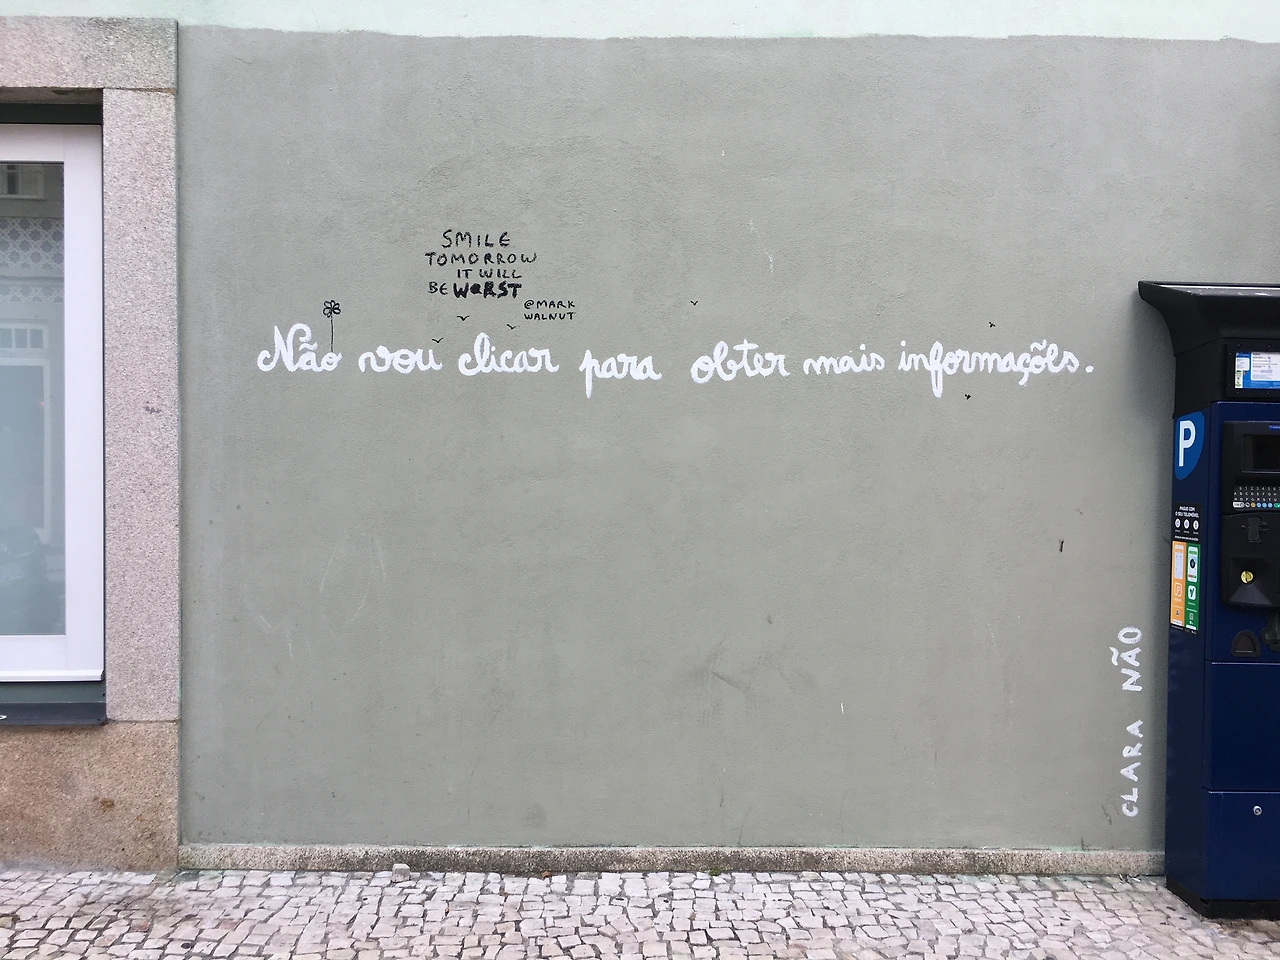 SMILE
TOMORROW
IT WILL
BE WORST
@MARK
WALNUT
Não vou clicar para obter mais informações.
P
PAGUE COM
O SEU TELEMÓVEL
CLARA NÃO